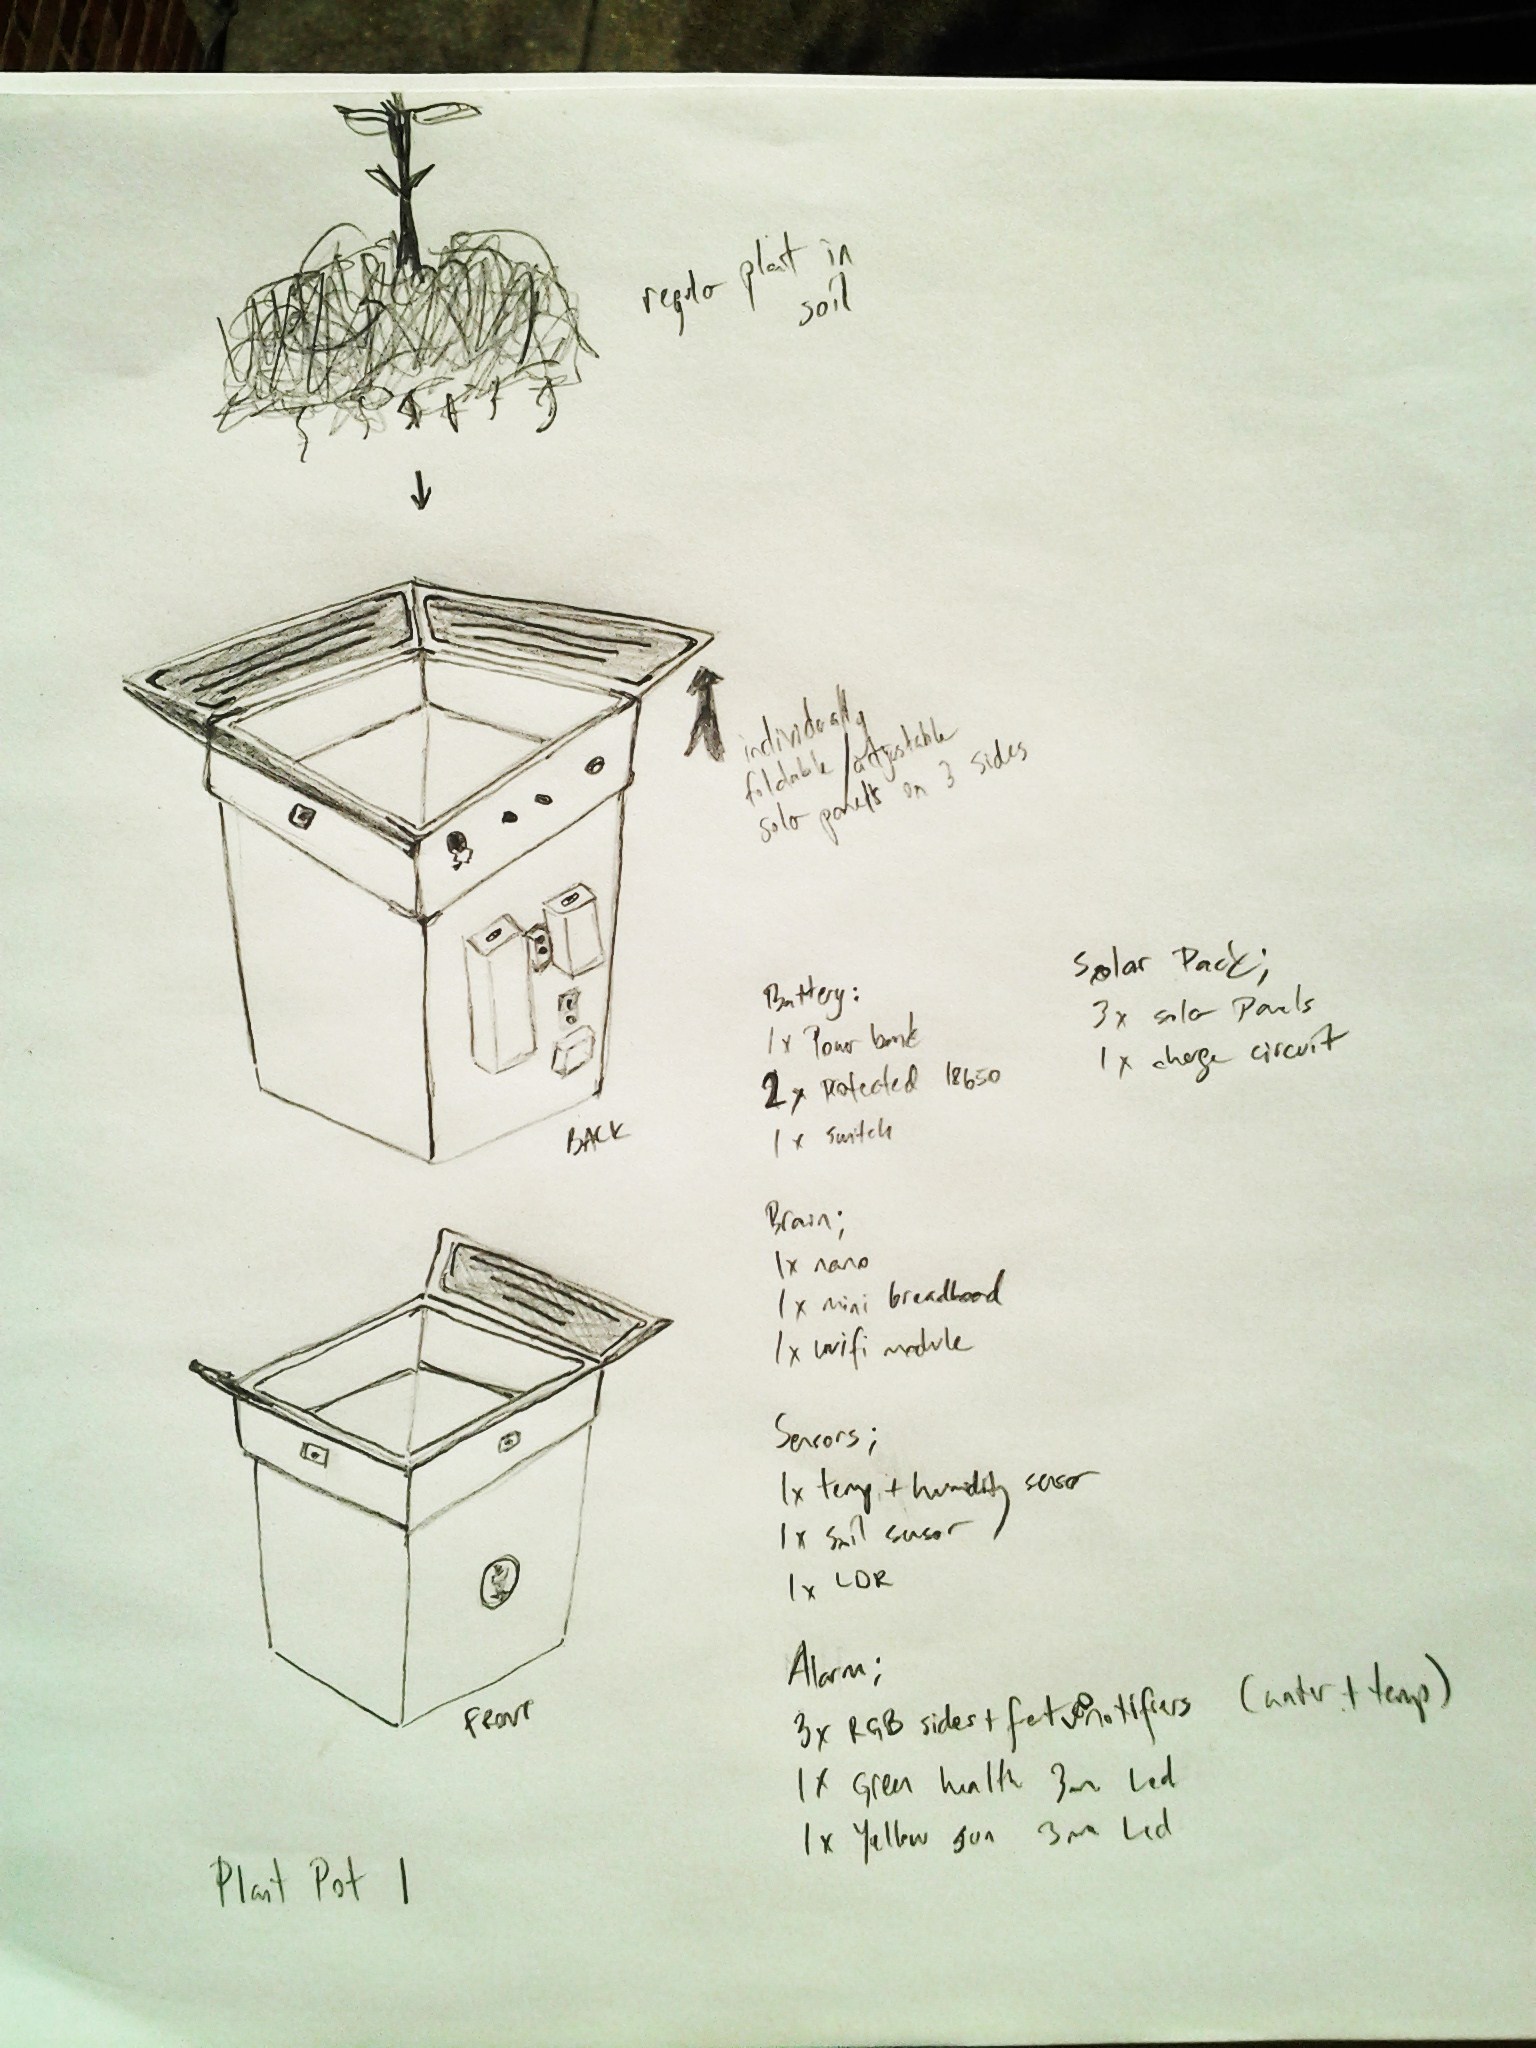 regular plant in
soil
individually
foldable/adjustable
solar panels on 3 sides
BACK
Battery:
1x Power bank
2x Protected 18650
1x switch
Solar Pack;
3x solar Panels
1x charge circuit
Brain;
1x nano
1x mini breadboard
1x wifi module
Sensors;
1x temp + humidity sensor
1x soil sensor
1x LDR
FRONT
Alarm;
3x RGB sides + notifiers (water + temp)
1x Green health 3mm Led
1x Yellow sun 3mm Led
Plant Pot 1